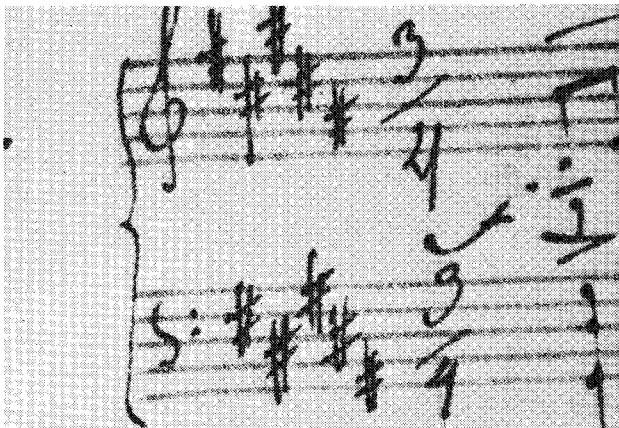 3/4
3/4